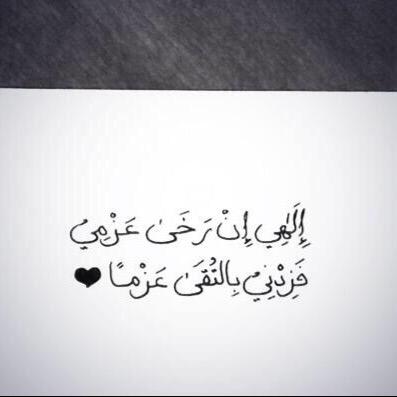 إِلَهِي إِنْ رَخَىٰ عَزْمِي
فَزِدْنِي بِالتُقَىٰ عَزْمًا ♥